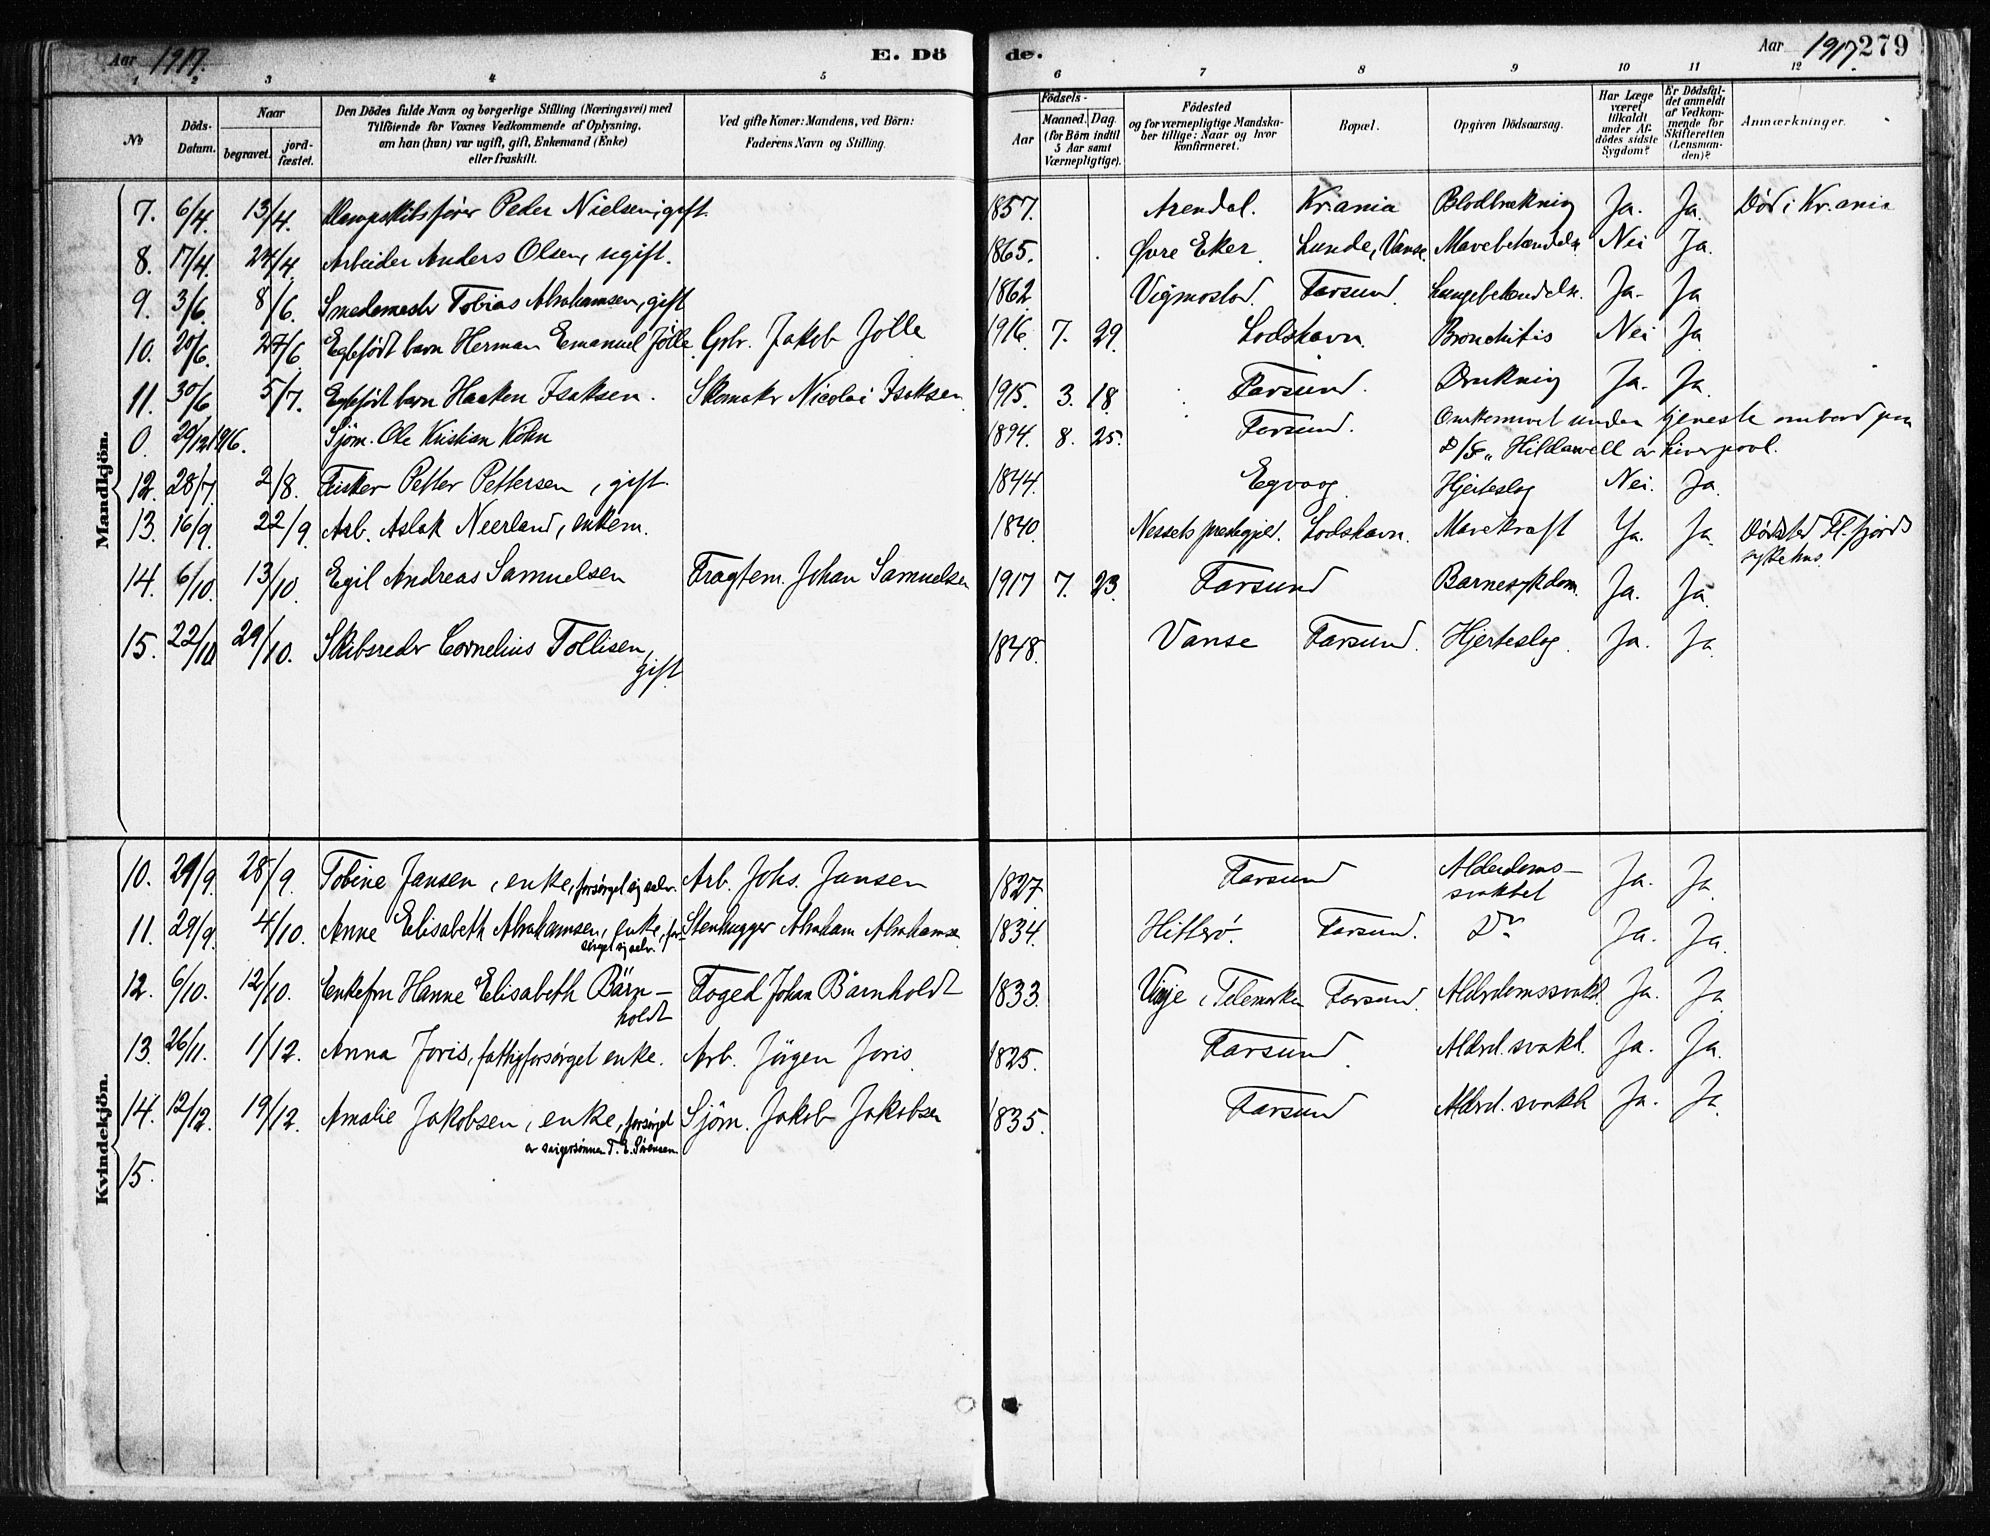 Aar 1917. E. Döde. Aar 1917. 279
1 2 3 4 5 6 7 8 9 10 11 12
№ Döds-Datum. Naar begravet. jord-fæstet. Den Dödes fulde Navn og borgerlige Stilling (Næringsvei) med Tilföiende for Voxnes Vedkommende af Oplysning, om han (hun) var ugift, gift, Enkemand (Enke) eller fraskilt. Ved gifte Koner: Mandens, ved Börn: Faderens Navn og Stilling. Födsels- Aar Maaned. Dag. (for Börn indtil 5 Aar samt Værnepligtige). Födested og for værnepligtige Mandskaber tillige: Naar og hvor konfirmeret. Bopæl. Opgiven Dödsaarsag. Har Læge været tilkaldt under Afdödes sidste Sygdom? Er Dödsfaldet anmeldt af Vedkommende for Skifteretten (Lensmanden)? Anmærkninger.
Mandkjön.
7. 6/4. 13/4. Dampskibsfører Peder Nielsen, gift 1857. Arendal. Kr.ania Blodbrækning Ja. Ja. Død i Kr.ania
8. 17/4. 24/4. Arbeider Anders Olsen, ugift. 1865. Øvre Eker. Lunde, Vanse. Mavebetændels. Nei Ja.
9. 3/6. 8/6. Smedemestr Tobias Abrahamsen, gift 1862 Vigmostad. Farsund. Lungebetændels. Ja. Ja
10. 20/6. 27/6 Egtefødt barn Herman Emanuel Jølle. Gbr. Jakob Jølle 1916 7. 29. Lodshavn. Bronchitis Nei Ja
11. 30/6. 5/7. Egtefødt barn Haakon Isaksen. Skomakr Nicolai Isaksen. 1915. 3. 18. Farsund. Drukning Ja. Ja.
0. 29/12 1916. Sjøm. Ole Kristian Køhn 1894. 8. 25. Farsund. Omkommet under tjeneste ombord paa
D/S „Hildawell av Liverpool.
12. 28/7 2/8. Fisker Petter Pettersen, gift. 1844. Egvaag Hjerteslag Nei. Ja.
13. 16/9. 22/9. Arb. Aslak Neerland, enkem. 1840. Nessets prestegjeld. Lodshavn. Mavekræft Ja. Ja. Dødsted Fl. fjords
sykehus
14. 6/10. 13/10. Egil Andreas Samuelsen Fragtem. Johan Samuelsen 1917 7. 23. Farsund Barnesykdom. Ja. Ja.
15. 22/10 29/10. Skibsreder Cornelius Tollisen, 1848. Vanse Farsund. Hjerteslag. Ja. Ja.
gift
Kvindekjön.
10. 21/9. 28/9. Tobine Jansen, enke, forsørget sig selv. Arb. Johs. Jansen 1827. Farsund Alderdoms-
svakhet Ja. Ja.
11. 29/9. 4/10. Anne Elisabeth Abrahamsen, enke, for- Stenhugger Abraham Abrahamse 1834. Hitterø. Farsund. Do Ja. Ja.
sørget sig selv.
12. 6/10. 12/10. Enkefru Hanne Elisabeth Bärn- Foged Johan Bärnholdt 1833. Vinje, Telemarken Farsund. Alderdomssvakh. Ja. Ja
holdt
13. 26/11. 1/12. Anna Joris, fattigforsørget enke. Arb. Jörgen Joris. 1825. Farsund. Alderd. svakh. Ja. Ja.
14. 12/12. 19/12. Amalie Jakobsen, enke, forsørget Sjøm. Jakob Jakobsen 1835. Farsund Alderd. svakh Ja. Ja.
av svigersønnen T. E. Sørensen.
15.